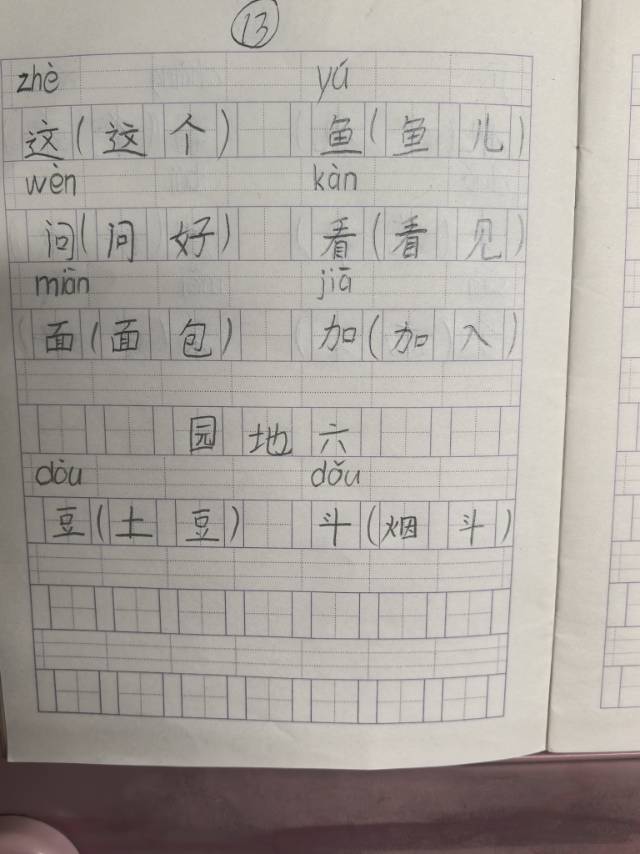 13
zhè yú
这(这个) 鱼(鱼儿)
wèn kàn
问(问好) 看(看见)
miàn jiā
面(面包) 加(加入)
园地六
dòu dǒu
豆(土豆) 斗(烟斗)